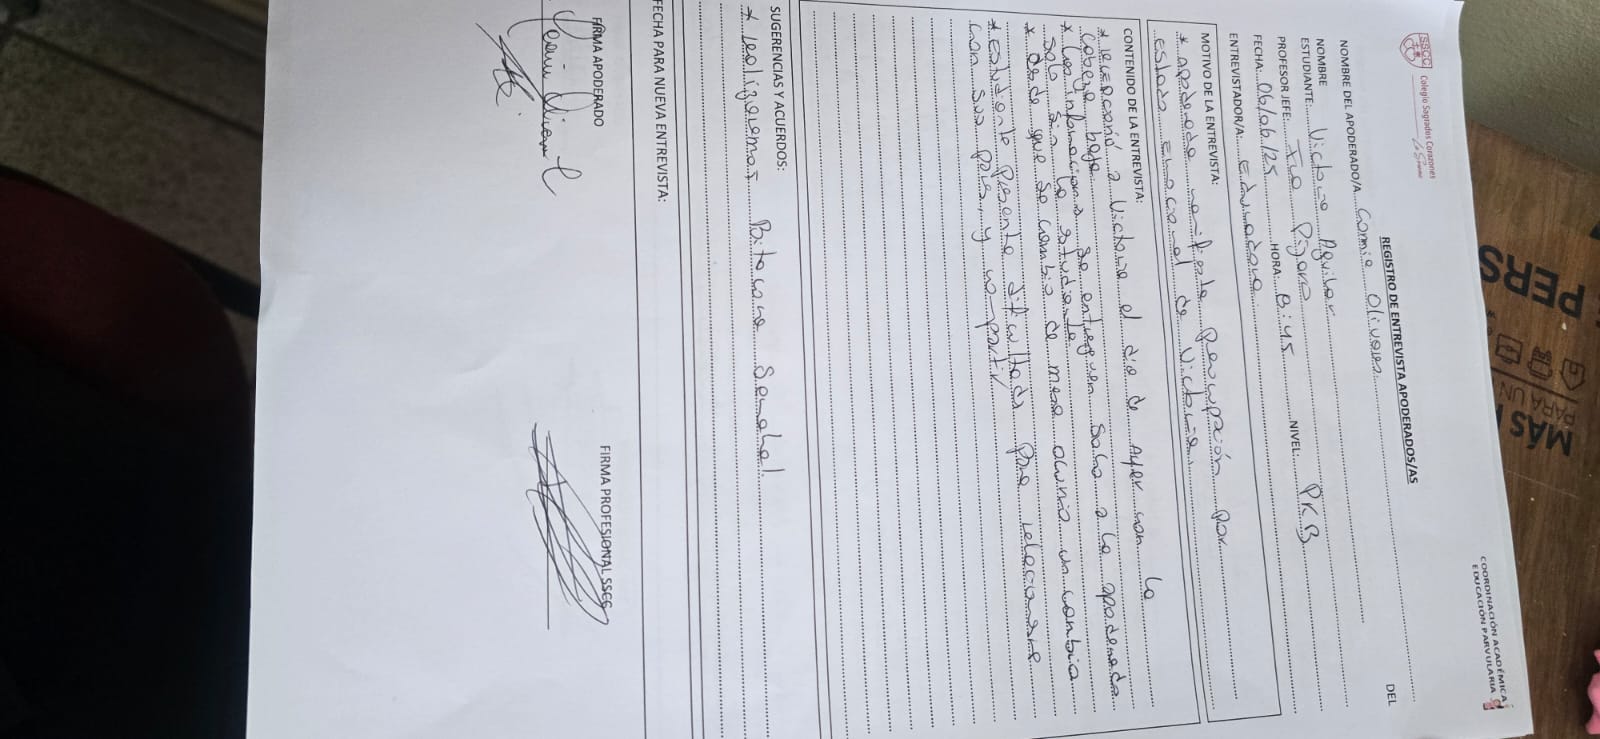 COORDINACIÓN ACADÉMICA
EDUCACIÓN PARVULARIA
SSCC Colegio Sagrados Corazones
La Serena
REGISTRO DE ENTREVISTA APODERADOS/AS
NOMBRE DEL APODERADO/A Camie Olivares DEL
NOMBRE
ESTUDIANTE: Victoria Aguilar
PROFESOR JEFE: Pizarro NIVEL: PKB
FECHA: 06/06/25 HORA: 8:45
ENTREVISTADOR/A: Educadora
MOTIVO DE LA ENTREVISTA:
* apoderada manifiesta preocupación por
estado emocional de Victoria.
CONTENIDO DE LA ENTREVISTA:
* recepcionó a Victoria el día de Ayer con la
cabeza baja
* Las informaciones se entreguen solo a la apoderada
solo sin la estudiante
* desde que se cambio de mesa ocurrio un cambio
* Estudiante presenta dificultades para relacionarse
con sus pares, y compartir
SUGERENCIAS Y ACUERDOS:
* realizaremos Bitacora Semanal
FECHA PARA NUEVA ENTREVISTA:
FIRMA APODERADO
FIRMA PROFESIONAL SSCC
MÁS
PERS
PARA UN